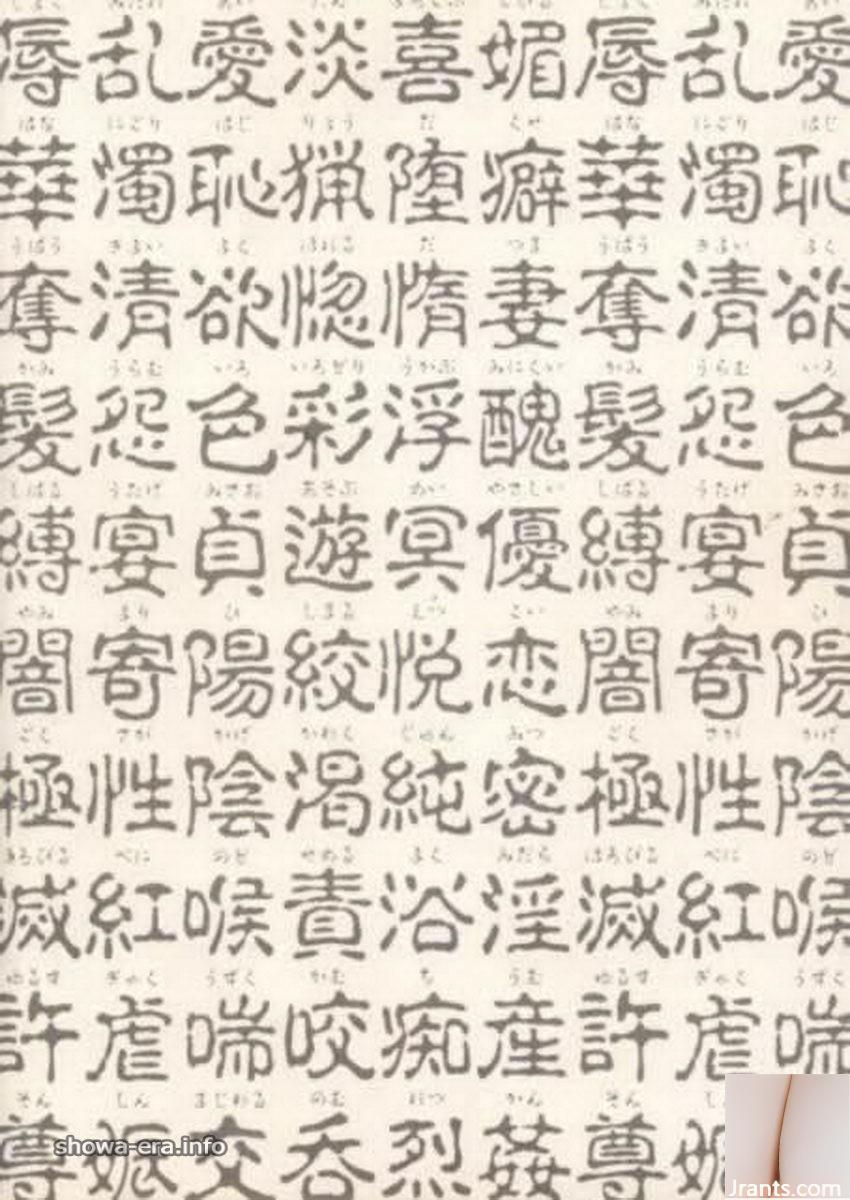 辱 乱 愛 淡 喜 媚 辱 乱 愛
はな にごり はじ りょう だ くせ はな にごり はじ
華 濁 恥 猟 堕 癖 華 濁 恥
うばう きよい よく ほれる だ つま うばう きよい よく
奪 清 欲 惚 惰 妻 奪 清 欲
かみ うらむ いろ いろどり うかぶ みにくい かみ うらむ いろ
髪 怨 色 彩 浮 醜 髪 怨 色
しばる うたげ みさお あそぶ めい やさしい しばる うたげ みさお
縛 宴 貞 遊 冥 優 縛 宴 貞
やみ より ひ しまる えつ こい やみ より ひ
闇 寄 陽 絞 悦 恋 闇 寄 陽
ごく さが かげ かわく じゅん みつ ごく さが かげ
極 性 陰 渇 純 密 極 性 陰
ほろびる べに のど せめる よく みだら ほろびる べに のど
滅 紅 喉 責 浴 淫 滅 紅 喉
ゆるす ぎゃく うずく かむ ち うむ ゆるす ぎゃく うずく
許 虐 喘 咬 痴 産 許 虐 喘
そん しん まじわる のむ れつ かん そん
尊 娠 交 呑 烈 姦 尊 娠
showa-era.info
Jrants.com